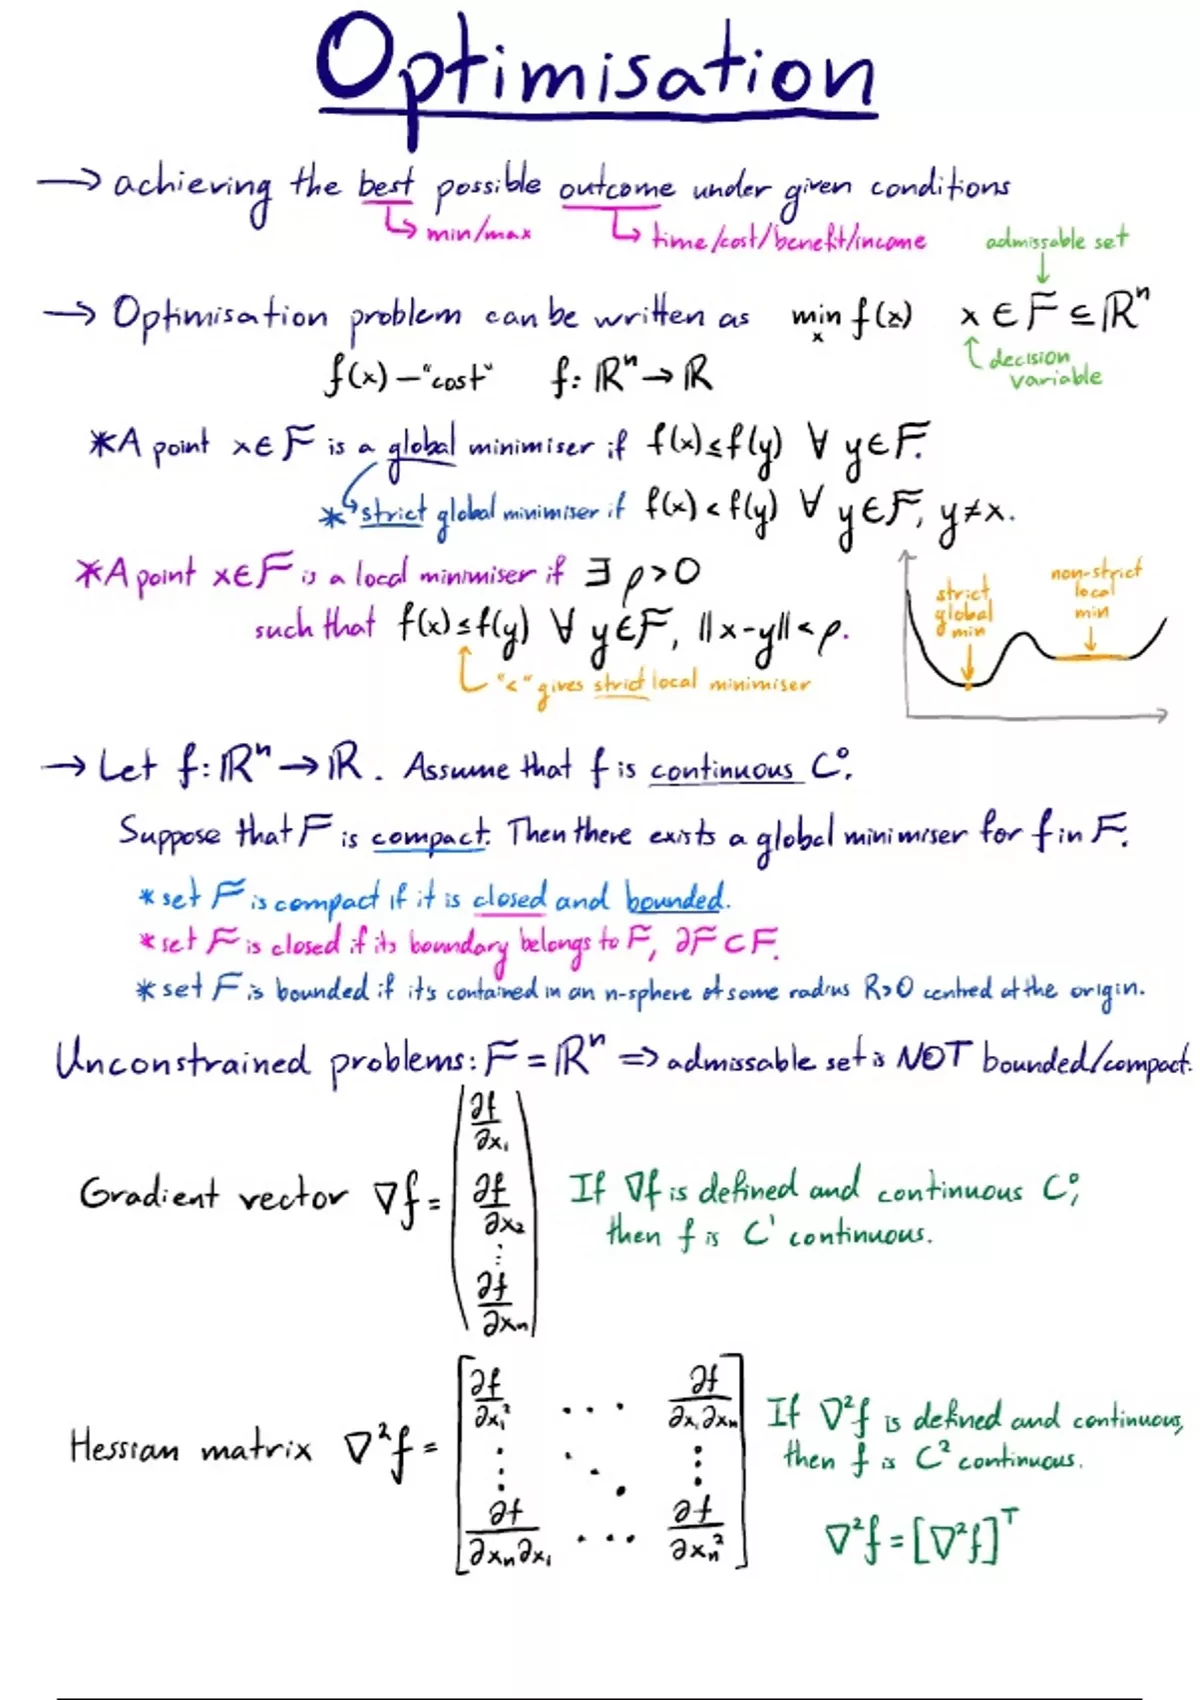 Optimisation
→ achieving the best possible outcome under given conditions
↳ min/max
↳ time/cost/benefit/income
admissable set
→ Optimisation problem can be written as min f(x) x ∈ F ⊆ ℝⁿ
x
decision
variable
f(x) – "cost" f: ℝⁿ → ℝ
*A point x∈F is a global minimiser if f(x) ≤ f(y) ∀ y∈F.
* strict global minimiser if f(x) < f(y) ∀ y∈F, y≠x.
*A point x∈F is a local minimiser if ∃ ρ>0
such that f(x) ≤ f(y) ∀ y∈F, ||x-y|| < ρ.
"<" gives strict local minimiser
strict
global
min
non-strict
local
min
→ Let f: ℝⁿ → ℝ. Assume that f is continuous C⁰.
Suppose that F is compact. Then there exists a global minimiser for f in F.
* set F is compact if it is closed and bounded.
* set F is closed if its boundary belongs to F, ∂F ⊂ F.
* set F is bounded if it's contained in an n-sphere of some radius R>0 centred at the origin.
Unconstrained problems: F = ℝⁿ => admissable set is NOT bounded/compact.
Gradient vector ∇f = (∂f/∂x₁ ∂f/∂x₂ ⋮ ∂f/∂xₙ)
If ∇f is defined and continuous C⁰,
then f is C¹ continuous.
Hessian matrix ∇²f = [∂f/∂x₁² ... ∂f/∂x₁∂xₙ
⋮ ⋱ ⋮
∂f/∂xₙ∂x₁ ... ∂f/∂xₙ²]
If ∇²f is defined and continuous,
then f is C² continuous.
∇²f = [∇²f]ᵀ